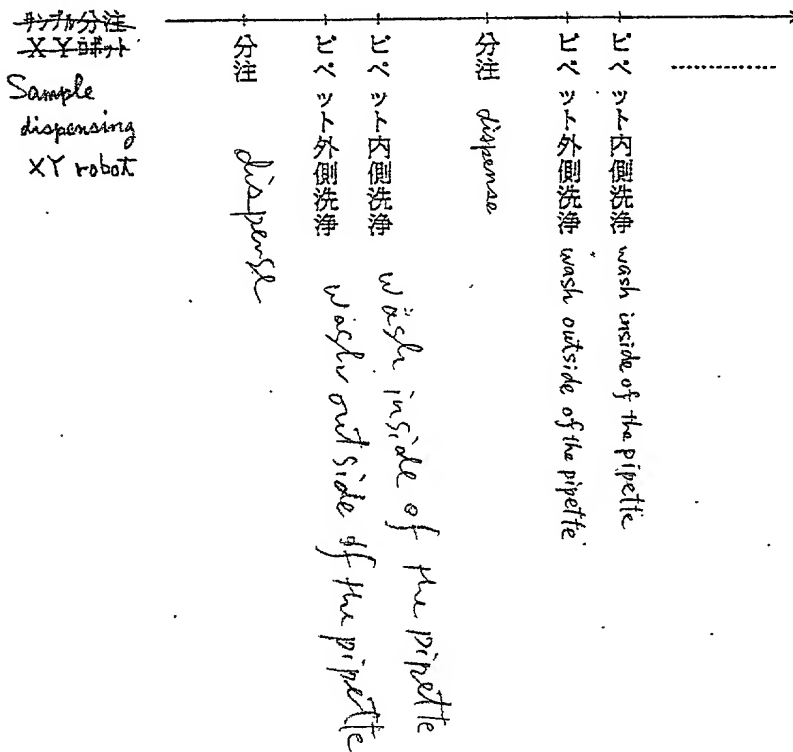 サンプル分注
XYロボット
Sample
dispensing
XY robot
分注
dispense
ピペット外側洗浄
wash outside of the pipette
ピペット内側洗浄
wash inside of the pipette
分注
dispense
ピペット外側洗浄
wash outside of the pipette
ピペット内側洗浄
wash inside of the pipette
............